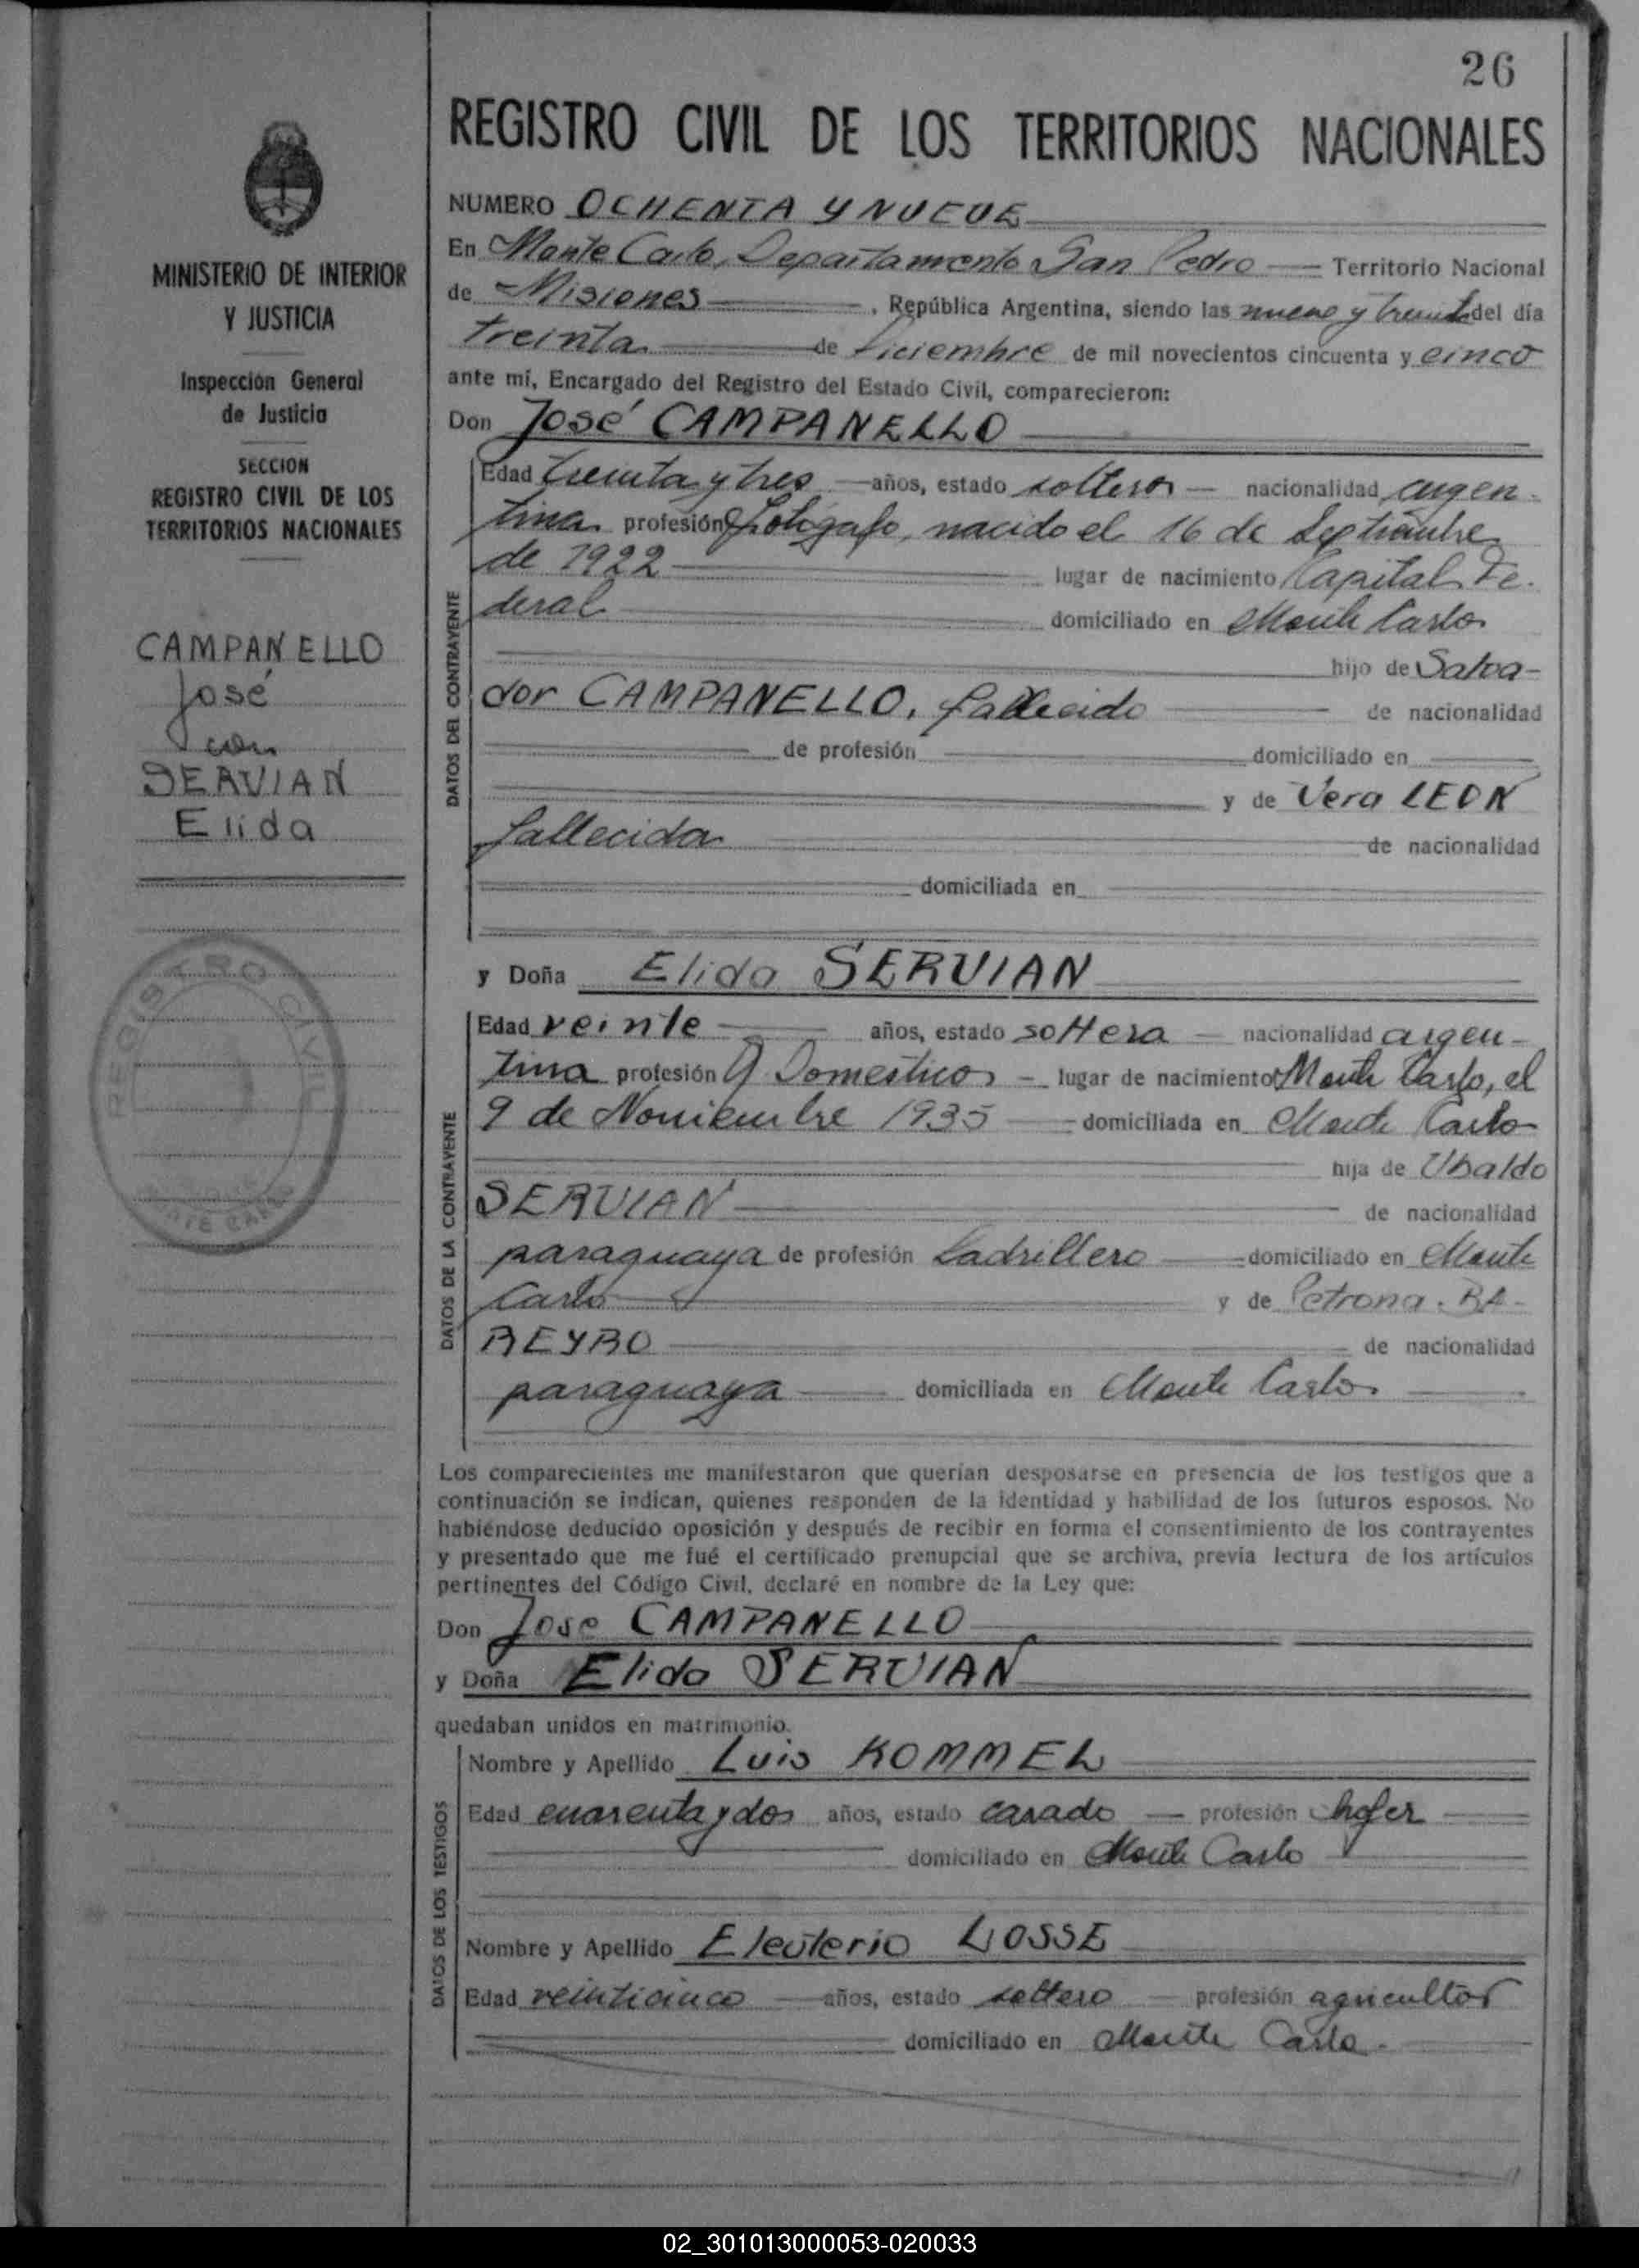 26
REGISTRO CIVIL DE LOS TERRITORIOS NACIONALES
MINISTERIO DE INTERIOR
Y JUSTICIA
Inspección General
de Justicia
SECCION
REGISTRO CIVIL DE LOS
TERRITORIOS NACIONALES
CAMPANELLO
José
con
SERVIAN
Elida
REGISTRO CIVIL
MONTE CARLO
NUMERO OCHENTA Y NUEVE
En Monte Carlo, Departamento San Pedro — Territorio Nacional
de Misiones, República Argentina, siendo las nueve y treinta del día
treinta de diciembre de mil novecientos cincuenta y cinco
ante mí, Encargado del Registro del Estado Civil, comparecieron:
Don José CAMPANELLO
DATOS DEL CONTRAYENTE
Edad treinta y tres años, estado soltero — nacionalidad argen-
tina profesión fotógafo, nacido el 16 de Septiembre
de 1922 lugar de nacimiento Capital Fe-
deral domiciliado en Monte Carlo
hijo de Salva-
dor CAMPANELLO, fallecido de nacionalidad
de profesión domiciliado en
y de Vera LEON
fallecida de nacionalidad
domiciliada en
y Doña Elida SERVIAN
DATOS DE LA CONTRAYENTE
Edad veinte años, estado soltera — nacionalidad argen-
tina profesión Q Domésticos — lugar de nacimiento Monte Carlo, el
9 de Noviembre 1935 domiciliada en Monte Carlo
hija de Ubaldo
SERVIAN de nacionalidad
paraguaya de profesión Ladrillero domiciliado en Monte
Carlo y de Petrona BA-
REYRO de nacionalidad
paraguaya domiciliada en Monte Carlo
Los comparecientes me manifestaron que querían desposarse en presencia de los testigos que a
continuación se indican, quienes responden de la identidad y habilidad de los futuros esposos. No
habiéndose deducido oposición y después de recibir en forma el consentimiento de los contrayentes
y presentado que me fué el certificado prenupcial que se archiva, previa lectura de los artículos
pertinentes del Código Civil, declaré en nombre de la Ley que:
Don Jose CAMPANELLO
y Doña Elida SERVIAN
quedaban unidos en matrimonio.
DATOS DE LOS TESTIGOS
Nombre y Apellido Luis KOMMEL
Edad cuarenta y dos años, estado casado — profesión chofer
domiciliado en Monte Carlo
Nombre y Apellido Eleuterio LOSSE
Edad veinticinco años, estado soltero — profesión agricultor
domiciliado en Monte Carlo
02_301013000053-020033